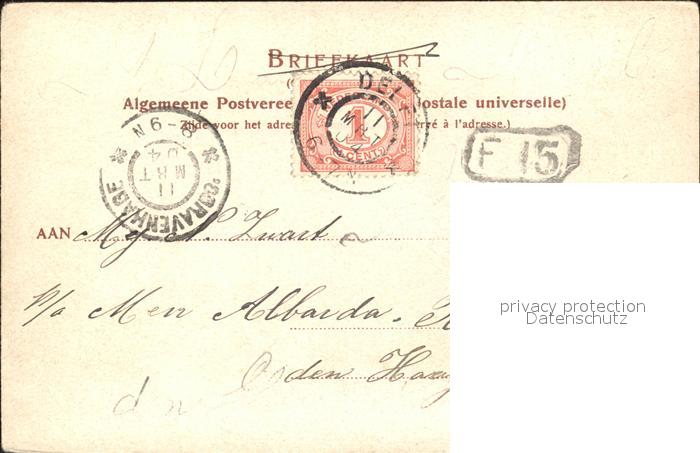 BRIEFKAART
Algemeene Postveree ostale universelle)
Zijde voor het adre rvé à l'adresse.)
DELFT
11
MRT
1
CENT
F 15
'SGRAVENHAGE
11
MRT
04
8-9N
AAN Mej N. Zwart
p/a Mevr Albarda.
den Haag
privacy protection
Datenschutz